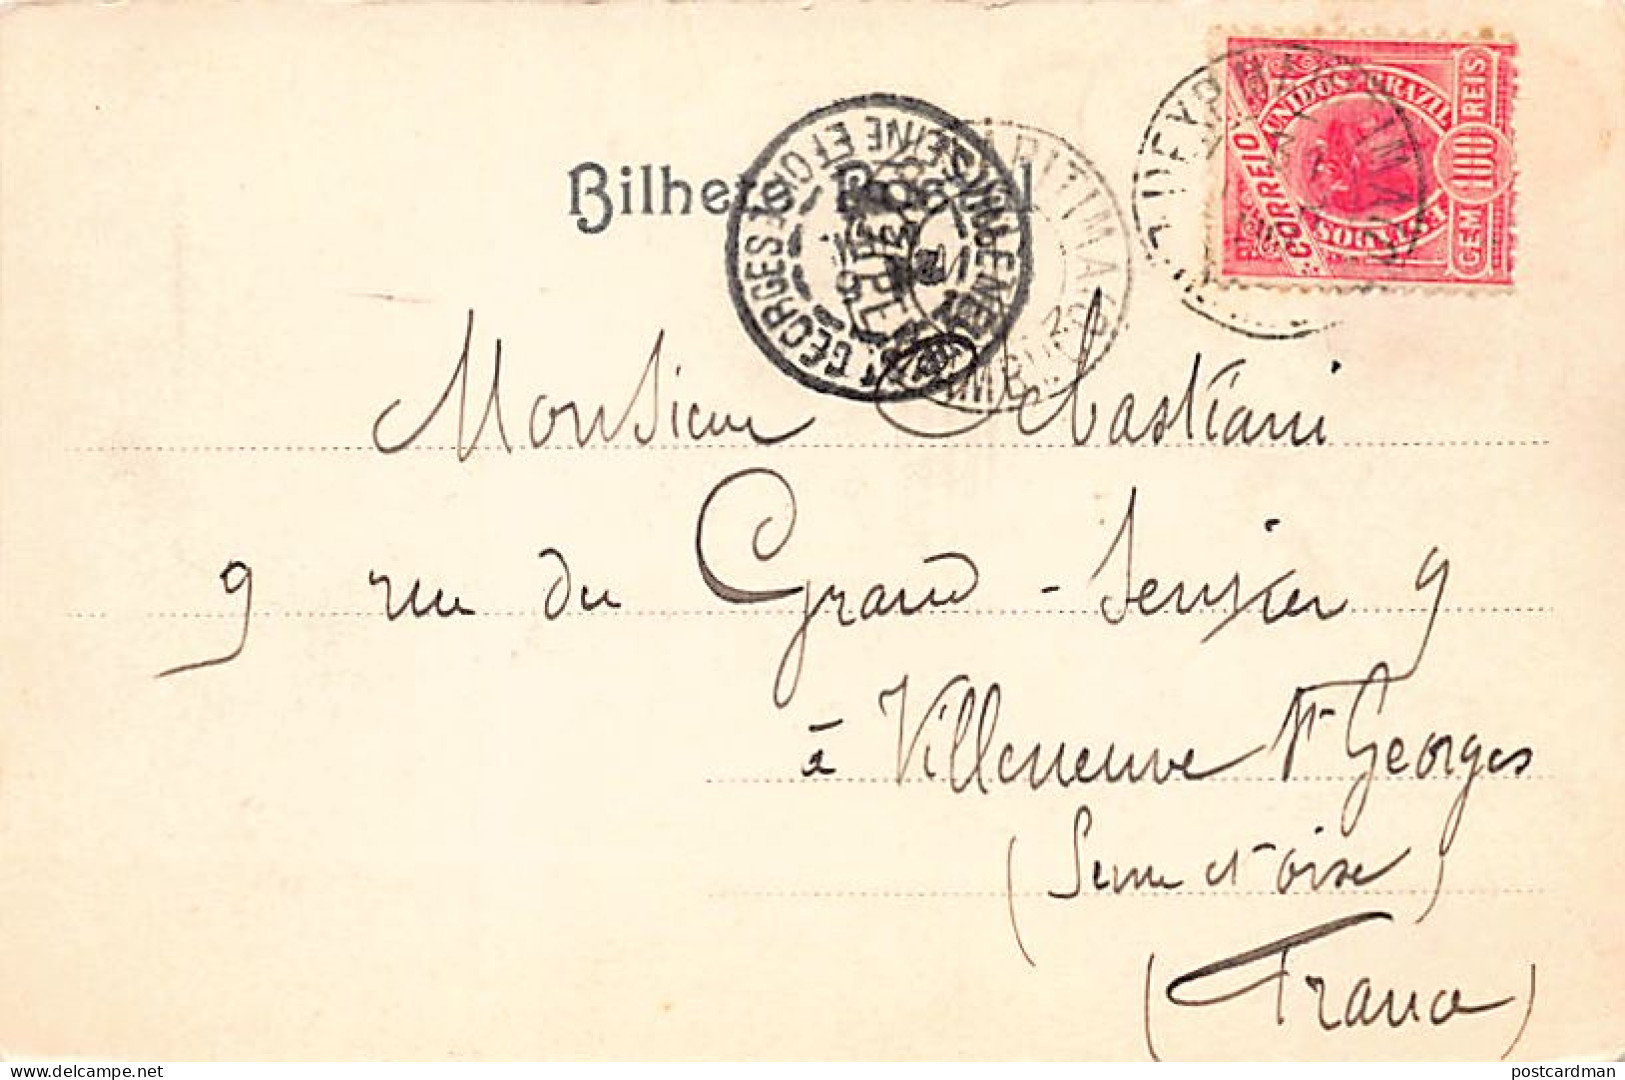 Bilhete Postal
CORREIO
ESTADOS UNIDOS BRAZIL
CEM 100 REIS
SEINE ET OISE
Monsieur
9 rue du Grand - 9
à Villeneuve St Georges
(Seine et oise)
(France)
postcardman